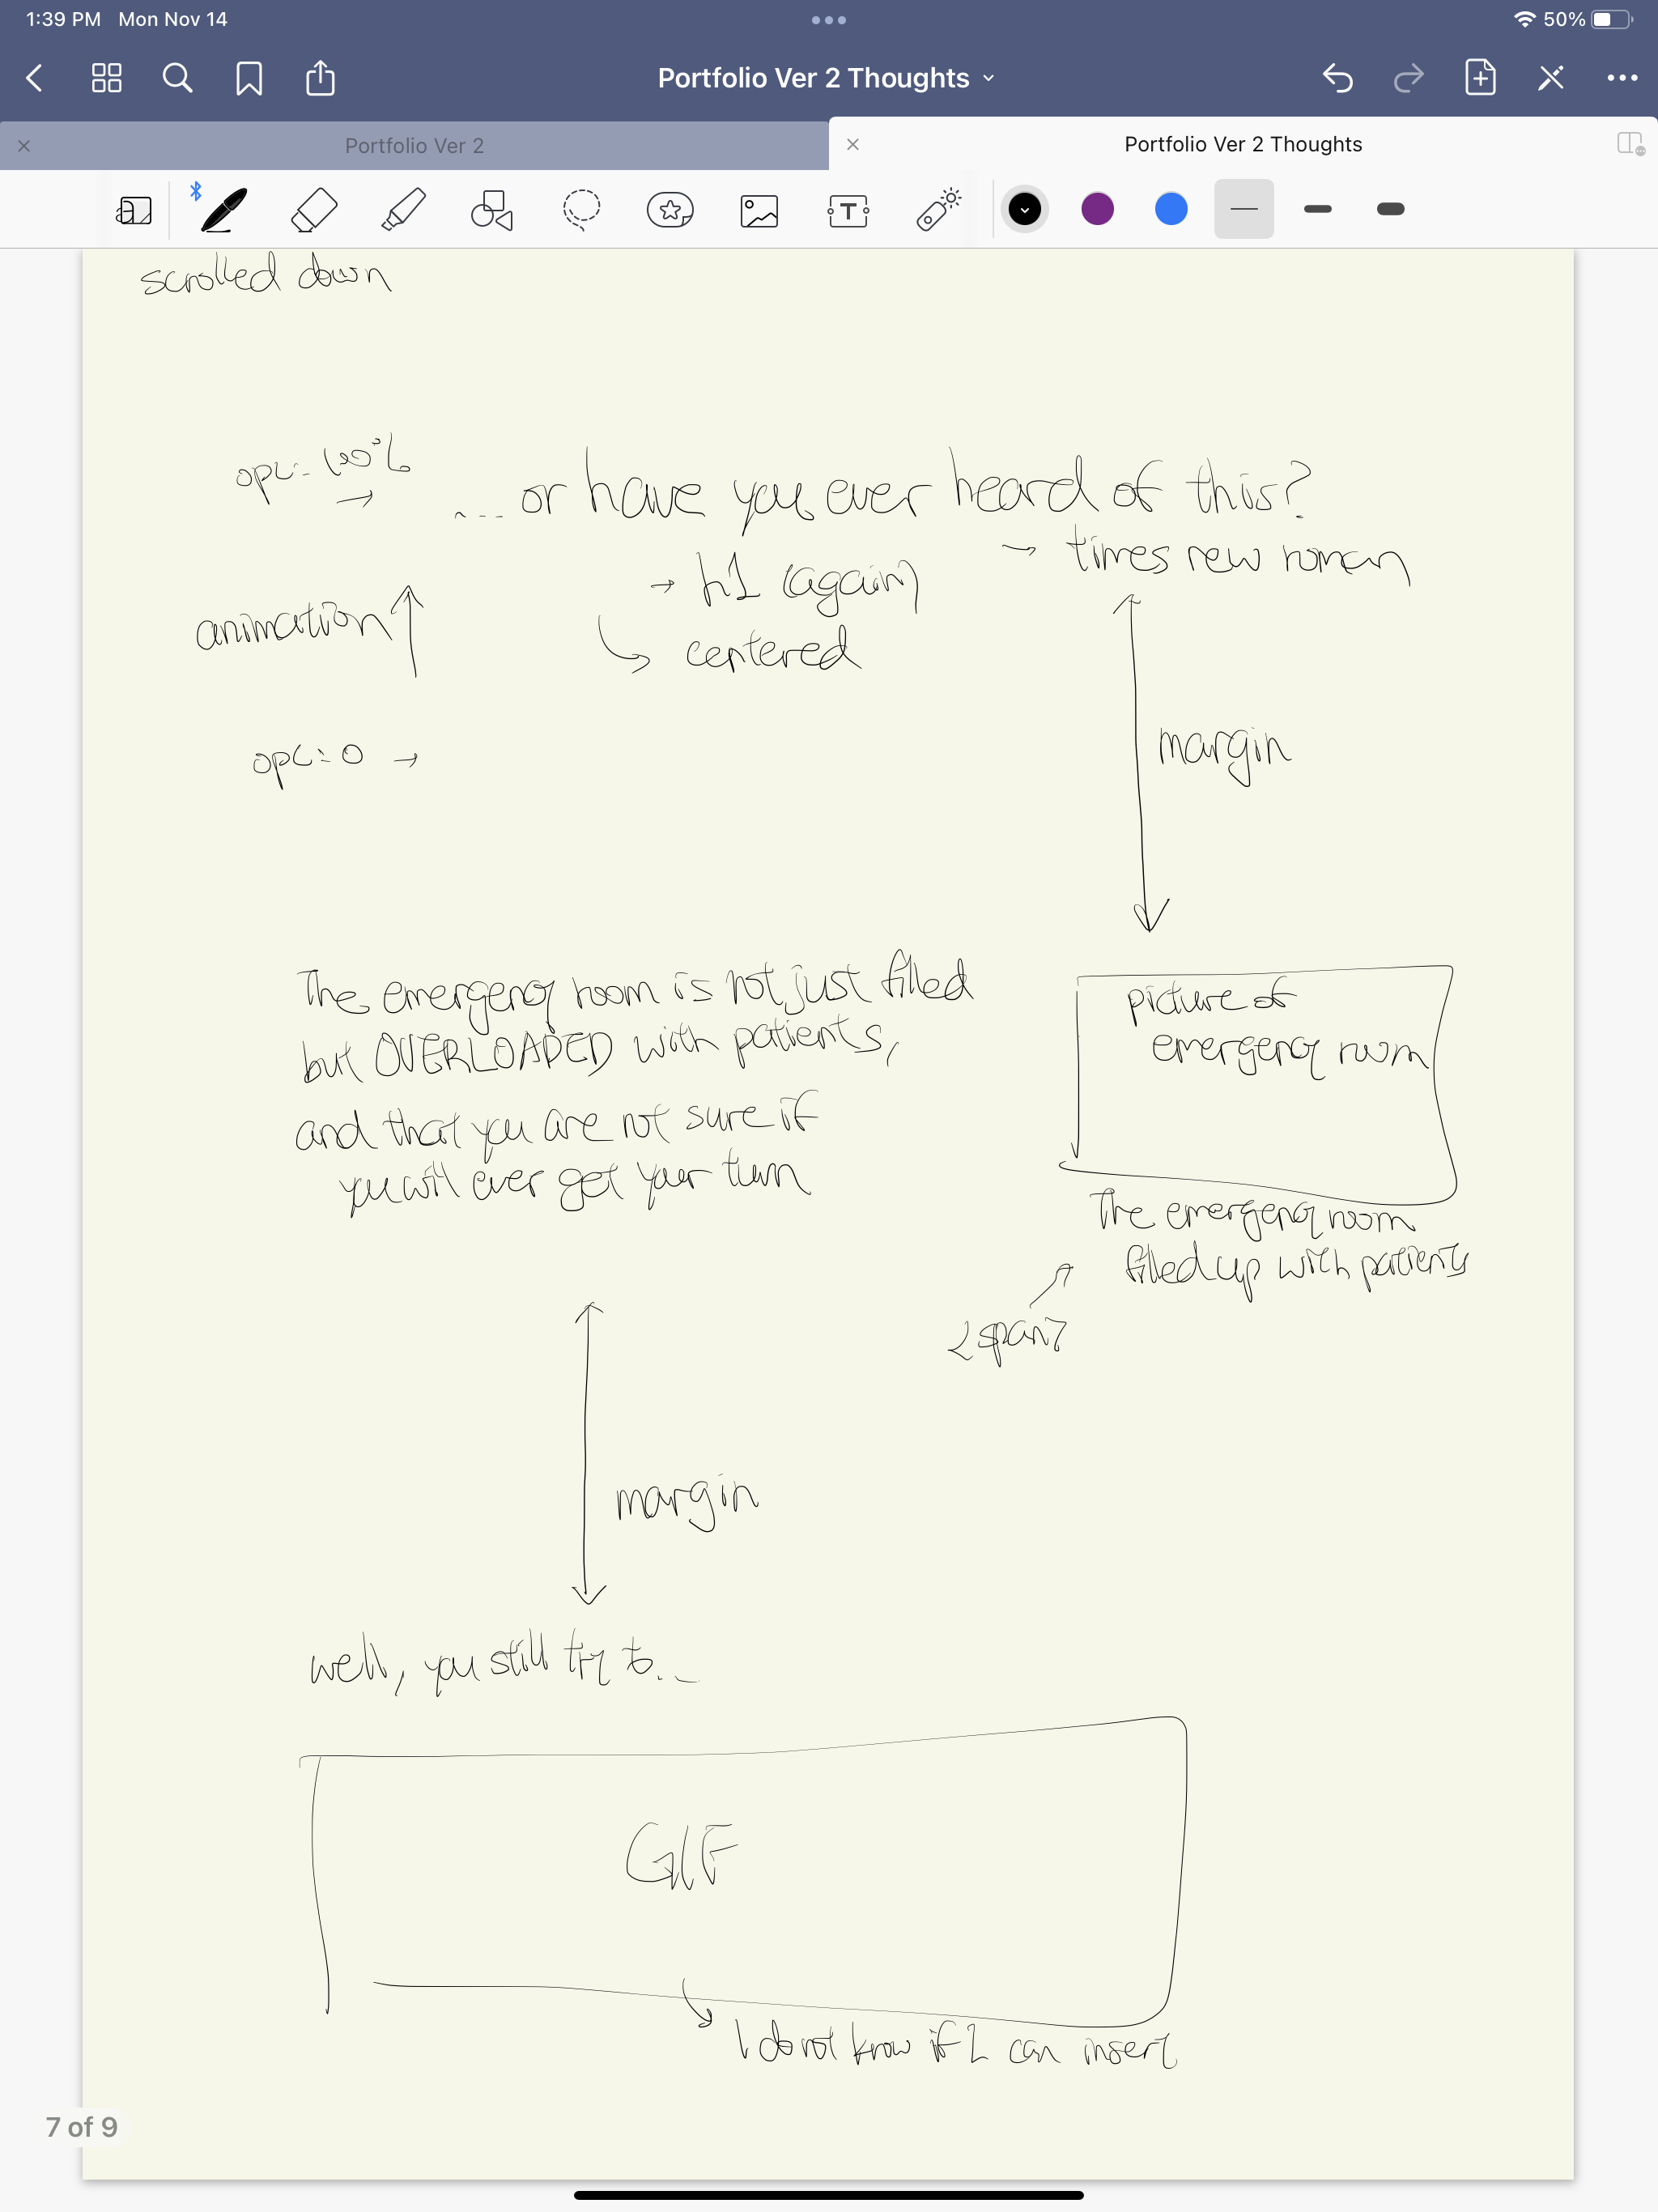 1:39 PM Mon Nov 14
50%
Portfolio Ver 2 Thoughts
Portfolio Ver 2
Portfolio Ver 2 Thoughts
scrolled down
opc: 100%
.... or have you ever heard of this?
→ times new roman
→ h1 (again)
centered
animation
opc: 0 →
margin
The emergency room is not just filled
but OVERLOADED with patients,
and that you are not sure if
you will ever get your turn
picture of
emergency room
The emergency room
filled up with patients
<span>
margin
well, you still try to...
GIF
I do not know if I can insert
7 of 9